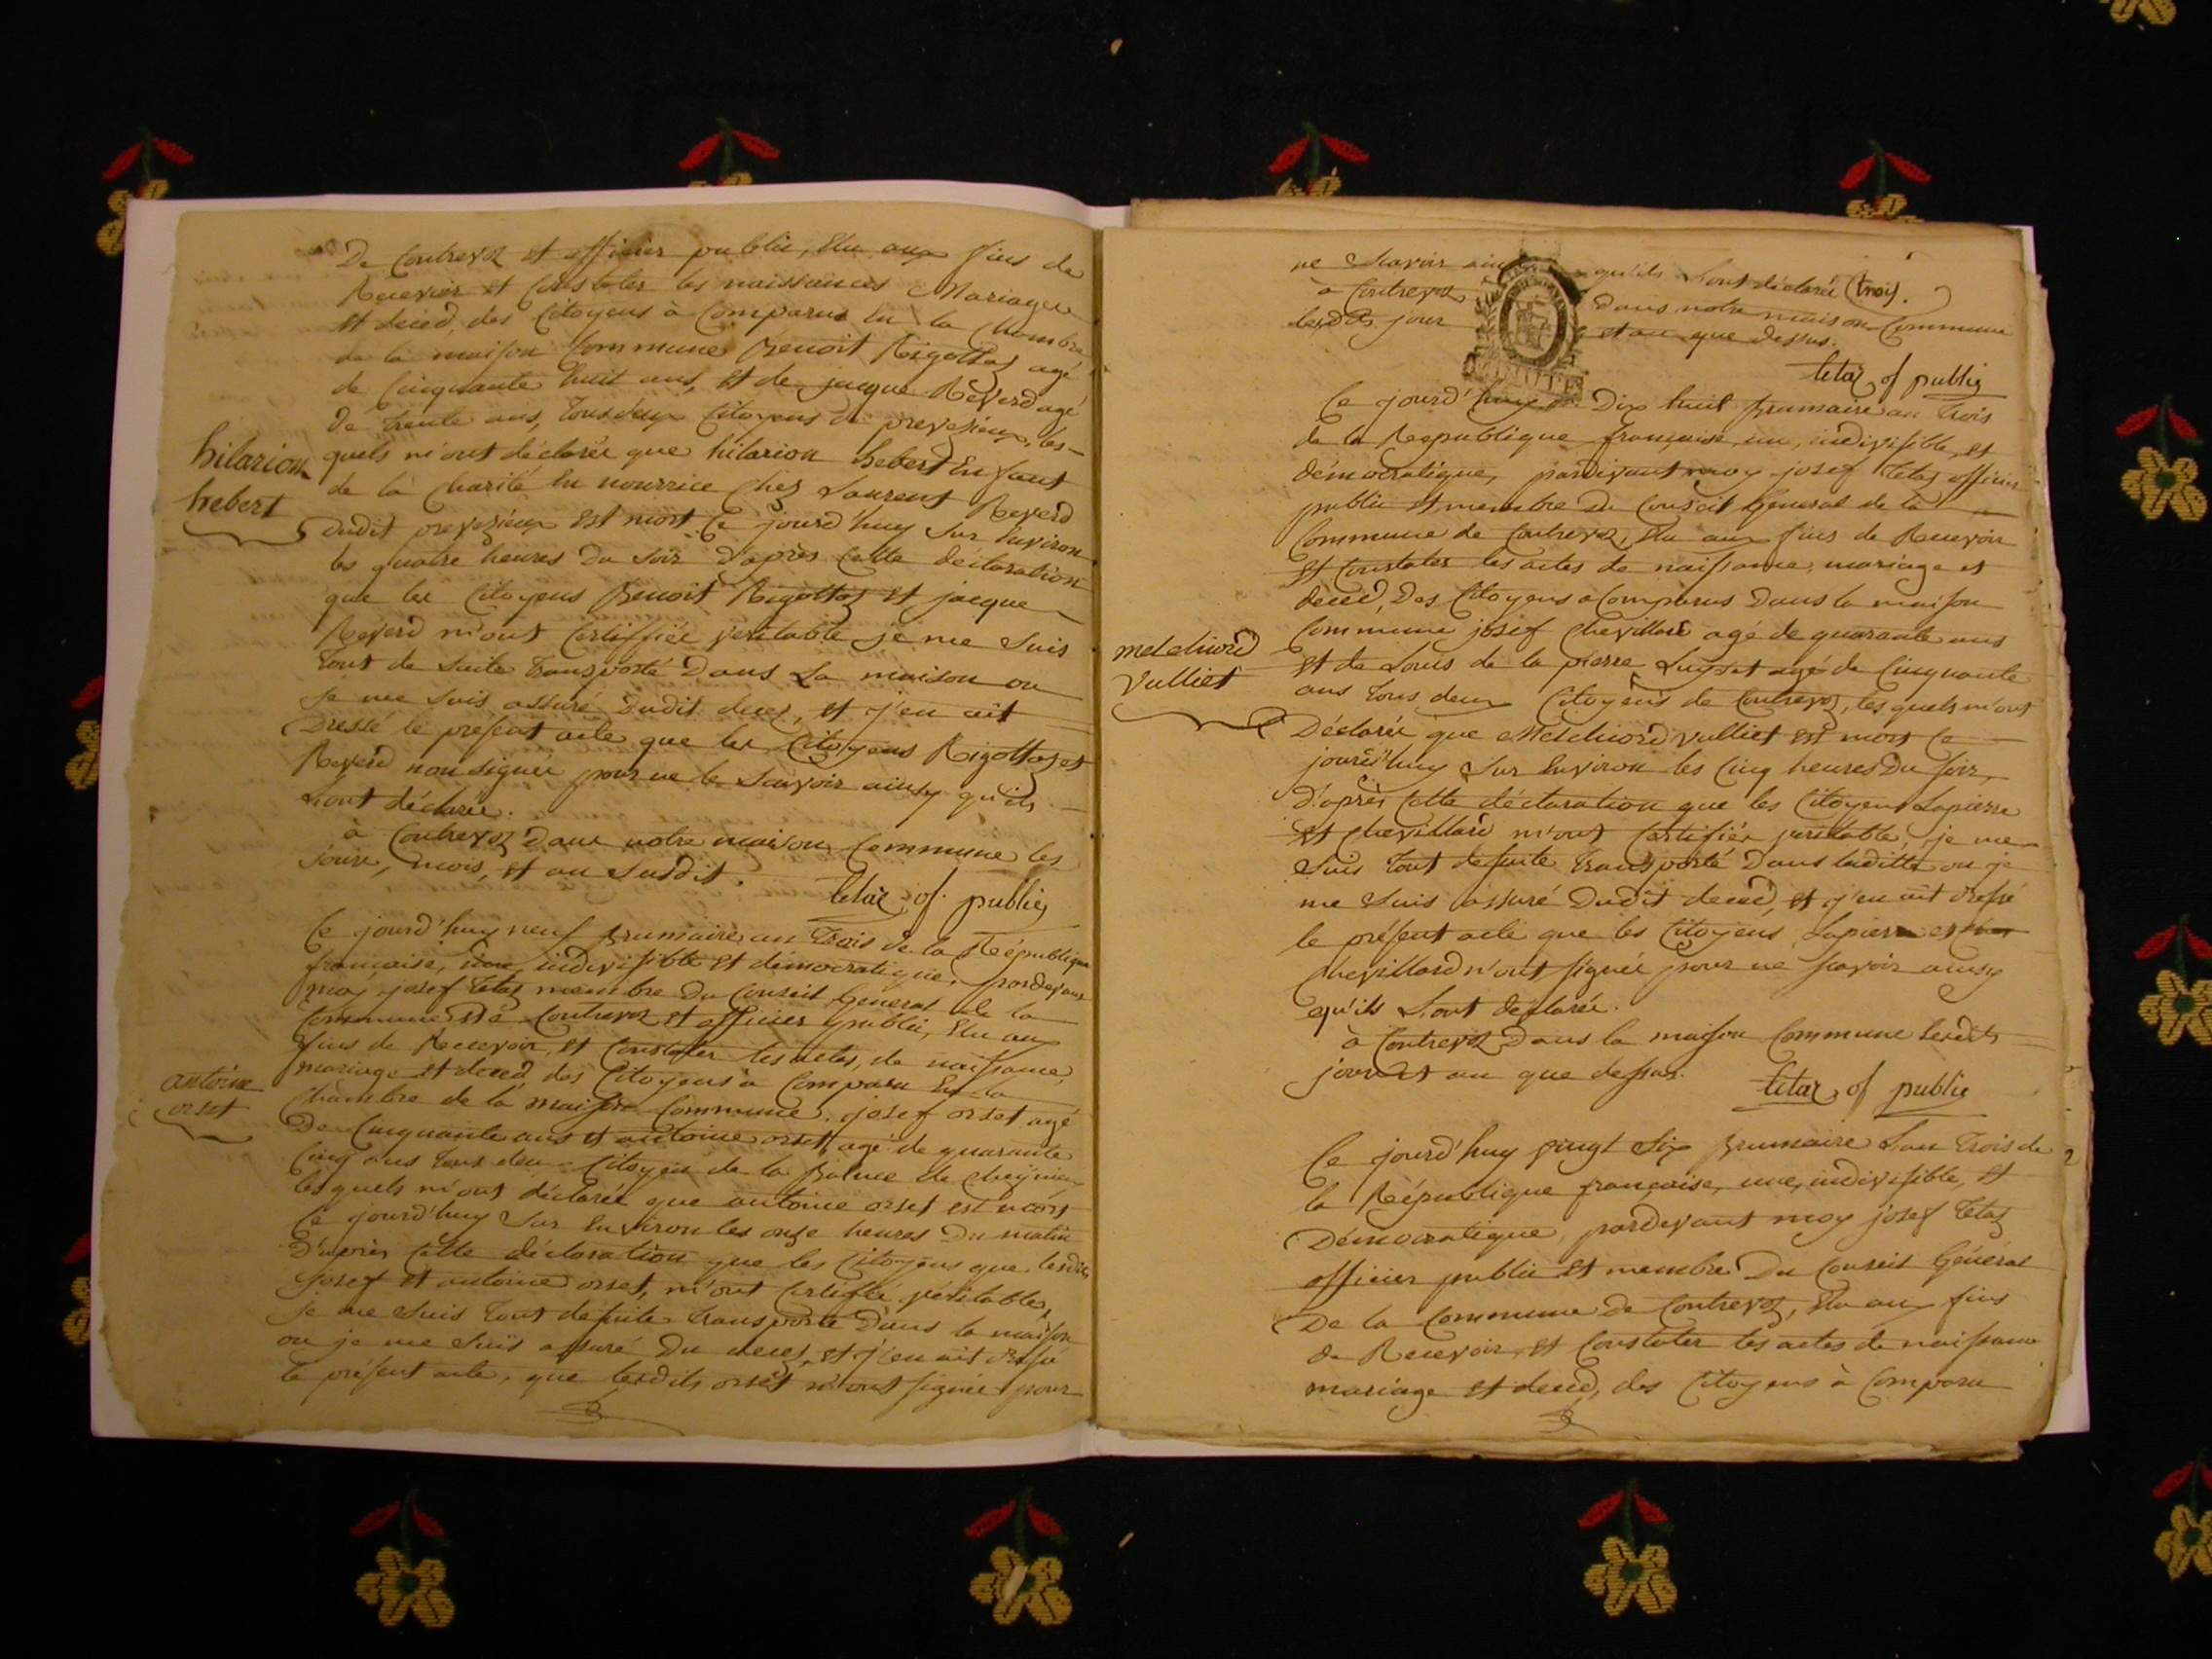 De Contrevoz et officier public, Elu aux fins de
Recevoir et Constater les naissances Mariage
et deced, des Citoyens à Comparus en la Chambre
de la maison Commune Benoit Rigottaz agé
de Cinquante huit ans, et de jacque Reverd agé
de trente ans, tous deux Citoyens de preveyzieux, les-
quels m'ont déclarée que hilarion hebert Enfant
hilarion
hebert
de la Charité En nourrice Chez Laurent Reverd
dudit preveyzieux est mort Ce jourd'huy sur Environ
les quatre heures du soir d'après Cette déclaration
que les Citoyens Benoit Rigottaz et jacque
Reverd m'ont Certiffiée veritable je me suis
tout de suite transporté Dans La maison ou
je me suis assuré dudit decez, et j'en ait
Dressé le présent acte que les Citoyens Rigottaz et
Reverd non signée pour ne le sçavoir ainsy qu'ils
L'ont déclarée.
à Contrevoz Dans notre maison Commune les
jours, mois, et an susdit.
tetaz of. public
Ce jourd'huy neuf Brumaire an trois de la République
francaise, une, indivisible et démocratique, pardevant
moy josef tetaz membre Du Conseil General de la
Commune de Contrevoz et officier public, Elu aux
fins de Recevoir, et Constater les actes, de naissance,
mariage et deced, des Citoyens à Comparu En la
Chambre de la maison Commune, josef orset agé
antoine
orset
De Cinquante ans et antoine orset agé de quarante
Cinq ans tous deux Citoyen de la Balme de
les quels m'ont déclarée que antoine orset est mort
Ce jourd'huy sur Environ les onze heures Du matin
D'après Cette déclaration que les Citoyens que lesdits
josef et antoine orset, m'ont Certifié véritable,
je me suis tout de suite transporté Dans la maison
ou je me suis assuré Du decez, et j'en ait dressé
le présent acte, que lesdits orset n'ont signée pour
ne scavoir qu'ils L'ont déclarée (trois.
à Contrevoz Dans notre maison Commune
lesdits jour et an que dessus.
tetaz of public
Ce jourd'huy Dix huit Brumaire an trois
de la République française, une, indivisible, et
démocratique, pardevant moy josef tetaz officier
public et membre du Conseil General de la
Commune de Contrevoz, Elu aux fins de Recevoir
et Constater les actes de naissance, mariage et
deced, Des Citoyens à Comparus Dans la maison
Commune josef Chevillard agé de quarante ans
melchiord
vulliet
et de Louis de la pierre agé de Cinquante
ans tous deux Citoyens de Contrevoz, les quels m'ont
Déclarée que Melchiord vulliet est mort Ce
jourd'huy sur Environ les Cinq heures Du soir,
D'après Cette déclaration que les Citoyens Lapierre
et Chevillard m'ont Certifiée veritable, je me
suis tout de suite transporté Dans laditte ou je
me suis assuré Dudit deced, et j'en ait dressé
le présent acte que les Citoyens Lapierre et
Chevillard n'ont signée pour ne sçavoir ainsy
qu'ils L'ont déclarée.
à Contrevoz Dans la maison Commune lesdits
jour et an que dessus.
tetaz of public
Ce jourd'huy vingt six Brumaire L'an trois de
la République française, une, indivisible, et
Démocratique, pardevant moy josef tetaz
officier public et membre Du Conseil Général
De la Commune de Contrevoz, Elu aux fins
de Recevoir, et Constater les actes de naissance
mariage et deced, des Citoyens à Comparu